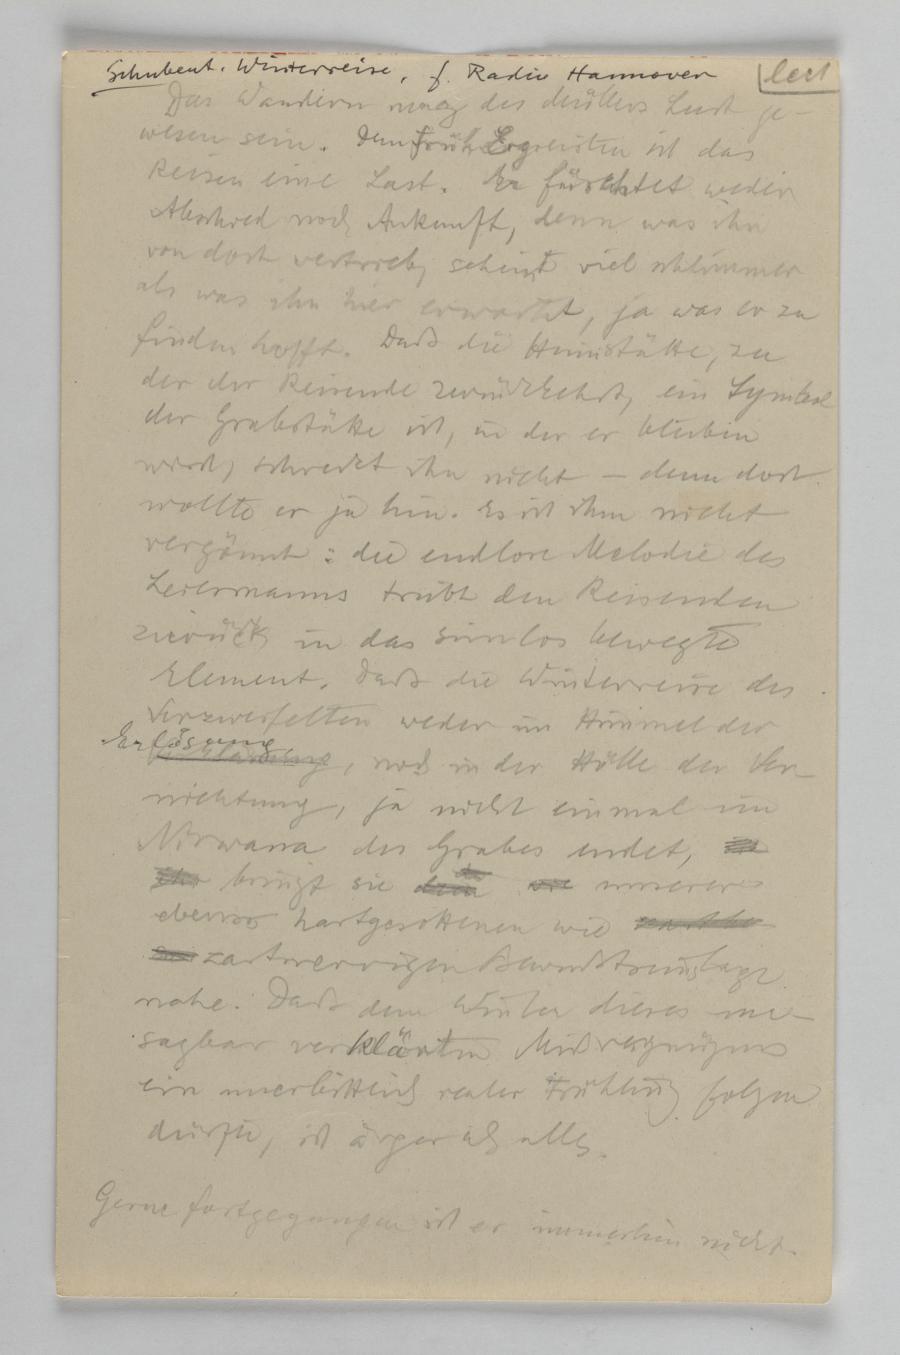 Schubert. Winterreise, f. Radio Hannover
Das Wandern mag des Müllers Lust ge-
wesen sein. Dem früh Ergreisten ist das
Reisen eine Last. Er fürchtet weder
Abschied noch Ankunft, denn was ihn
von dort vertrieb, scheint viel schlimmer
als was ihn hier erwartet, ja was er zu
finden hofft. Daß die Heimstätte, zu
der der Reisende zurückkehrt, ein Symbol
der Grabstätte ist, in der er bleiben
wird, schreckt ihn nicht – denn dort
wollte er ja hin. Es ist ihm nicht
vergönnt: die endlose Melodie des
Leiermanns treibt den Reisenden
zurück in das sinnlos bewegte
Element. Daß die Winterreise des
Verzweifelten weder im Himmel der
Erlösung
, noch in der Hölle der Ver-
nichtung, ja nicht einmal im
Nirwana des Grabes endet,
bringt sie unserer
ebenso hartgesottenen wie
zartnervigen Bewußtseinslage
nahe. Daß dem Winter dieses un-
sagbar verklärten Mißvergnügens
ein unerbittlich realer Frühling folgen
dürfte, ist ärger als alles.
Gerne fortgegangen ist er immerhin nicht.